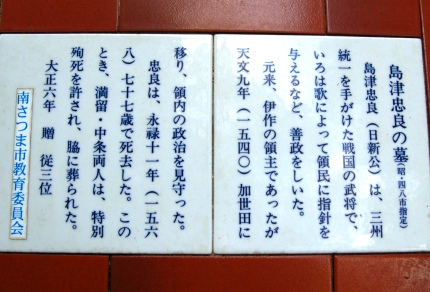 島津忠良の墓(昭・四八市指定)
島津忠良(日新公)は、三州
統一を手がけた戦国の武将で、
いろは歌によって領民に指針を
与えるなど、善政をしいた。
元来、伊作の領主であったが
天文九年(一五四〇)加世田に
移り、領内の政治を見守った。
忠良は、永禄十一年(一五六
八)七十七歳で死去した。この
とき、満留・中条両人は、特別
殉死を許され、脇に葬られた。
大正六年 贈 従三位
南さつま市教育委員会